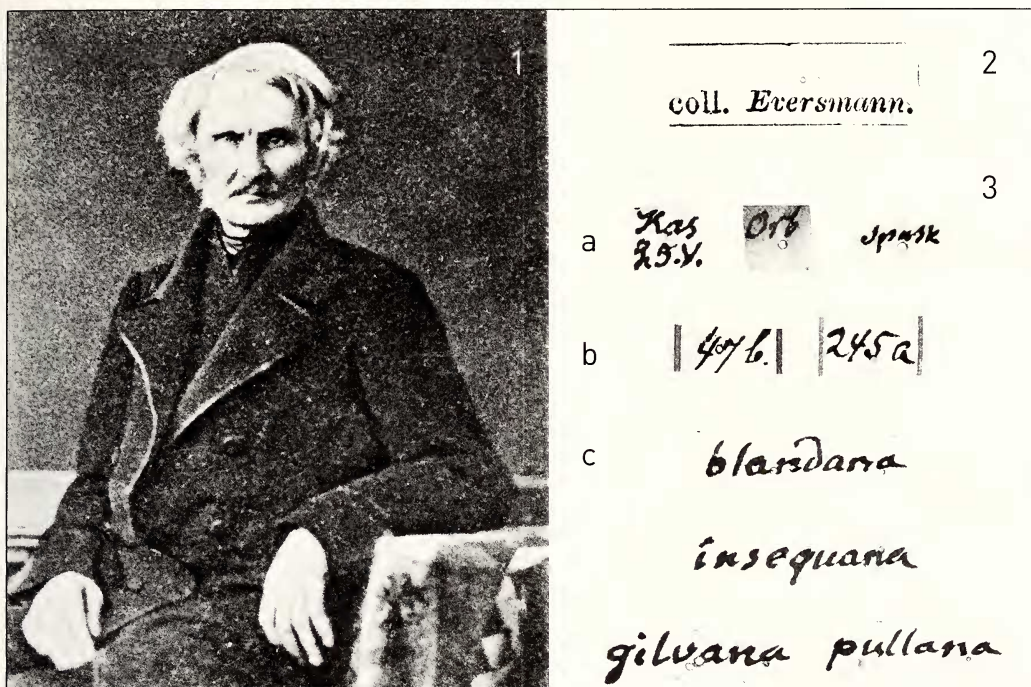 1
2
coll. Eversmann.
3
a
Kas Orb spask
25.V.
b
47b. 245a
c
blandana
insequana
gilvana pullana